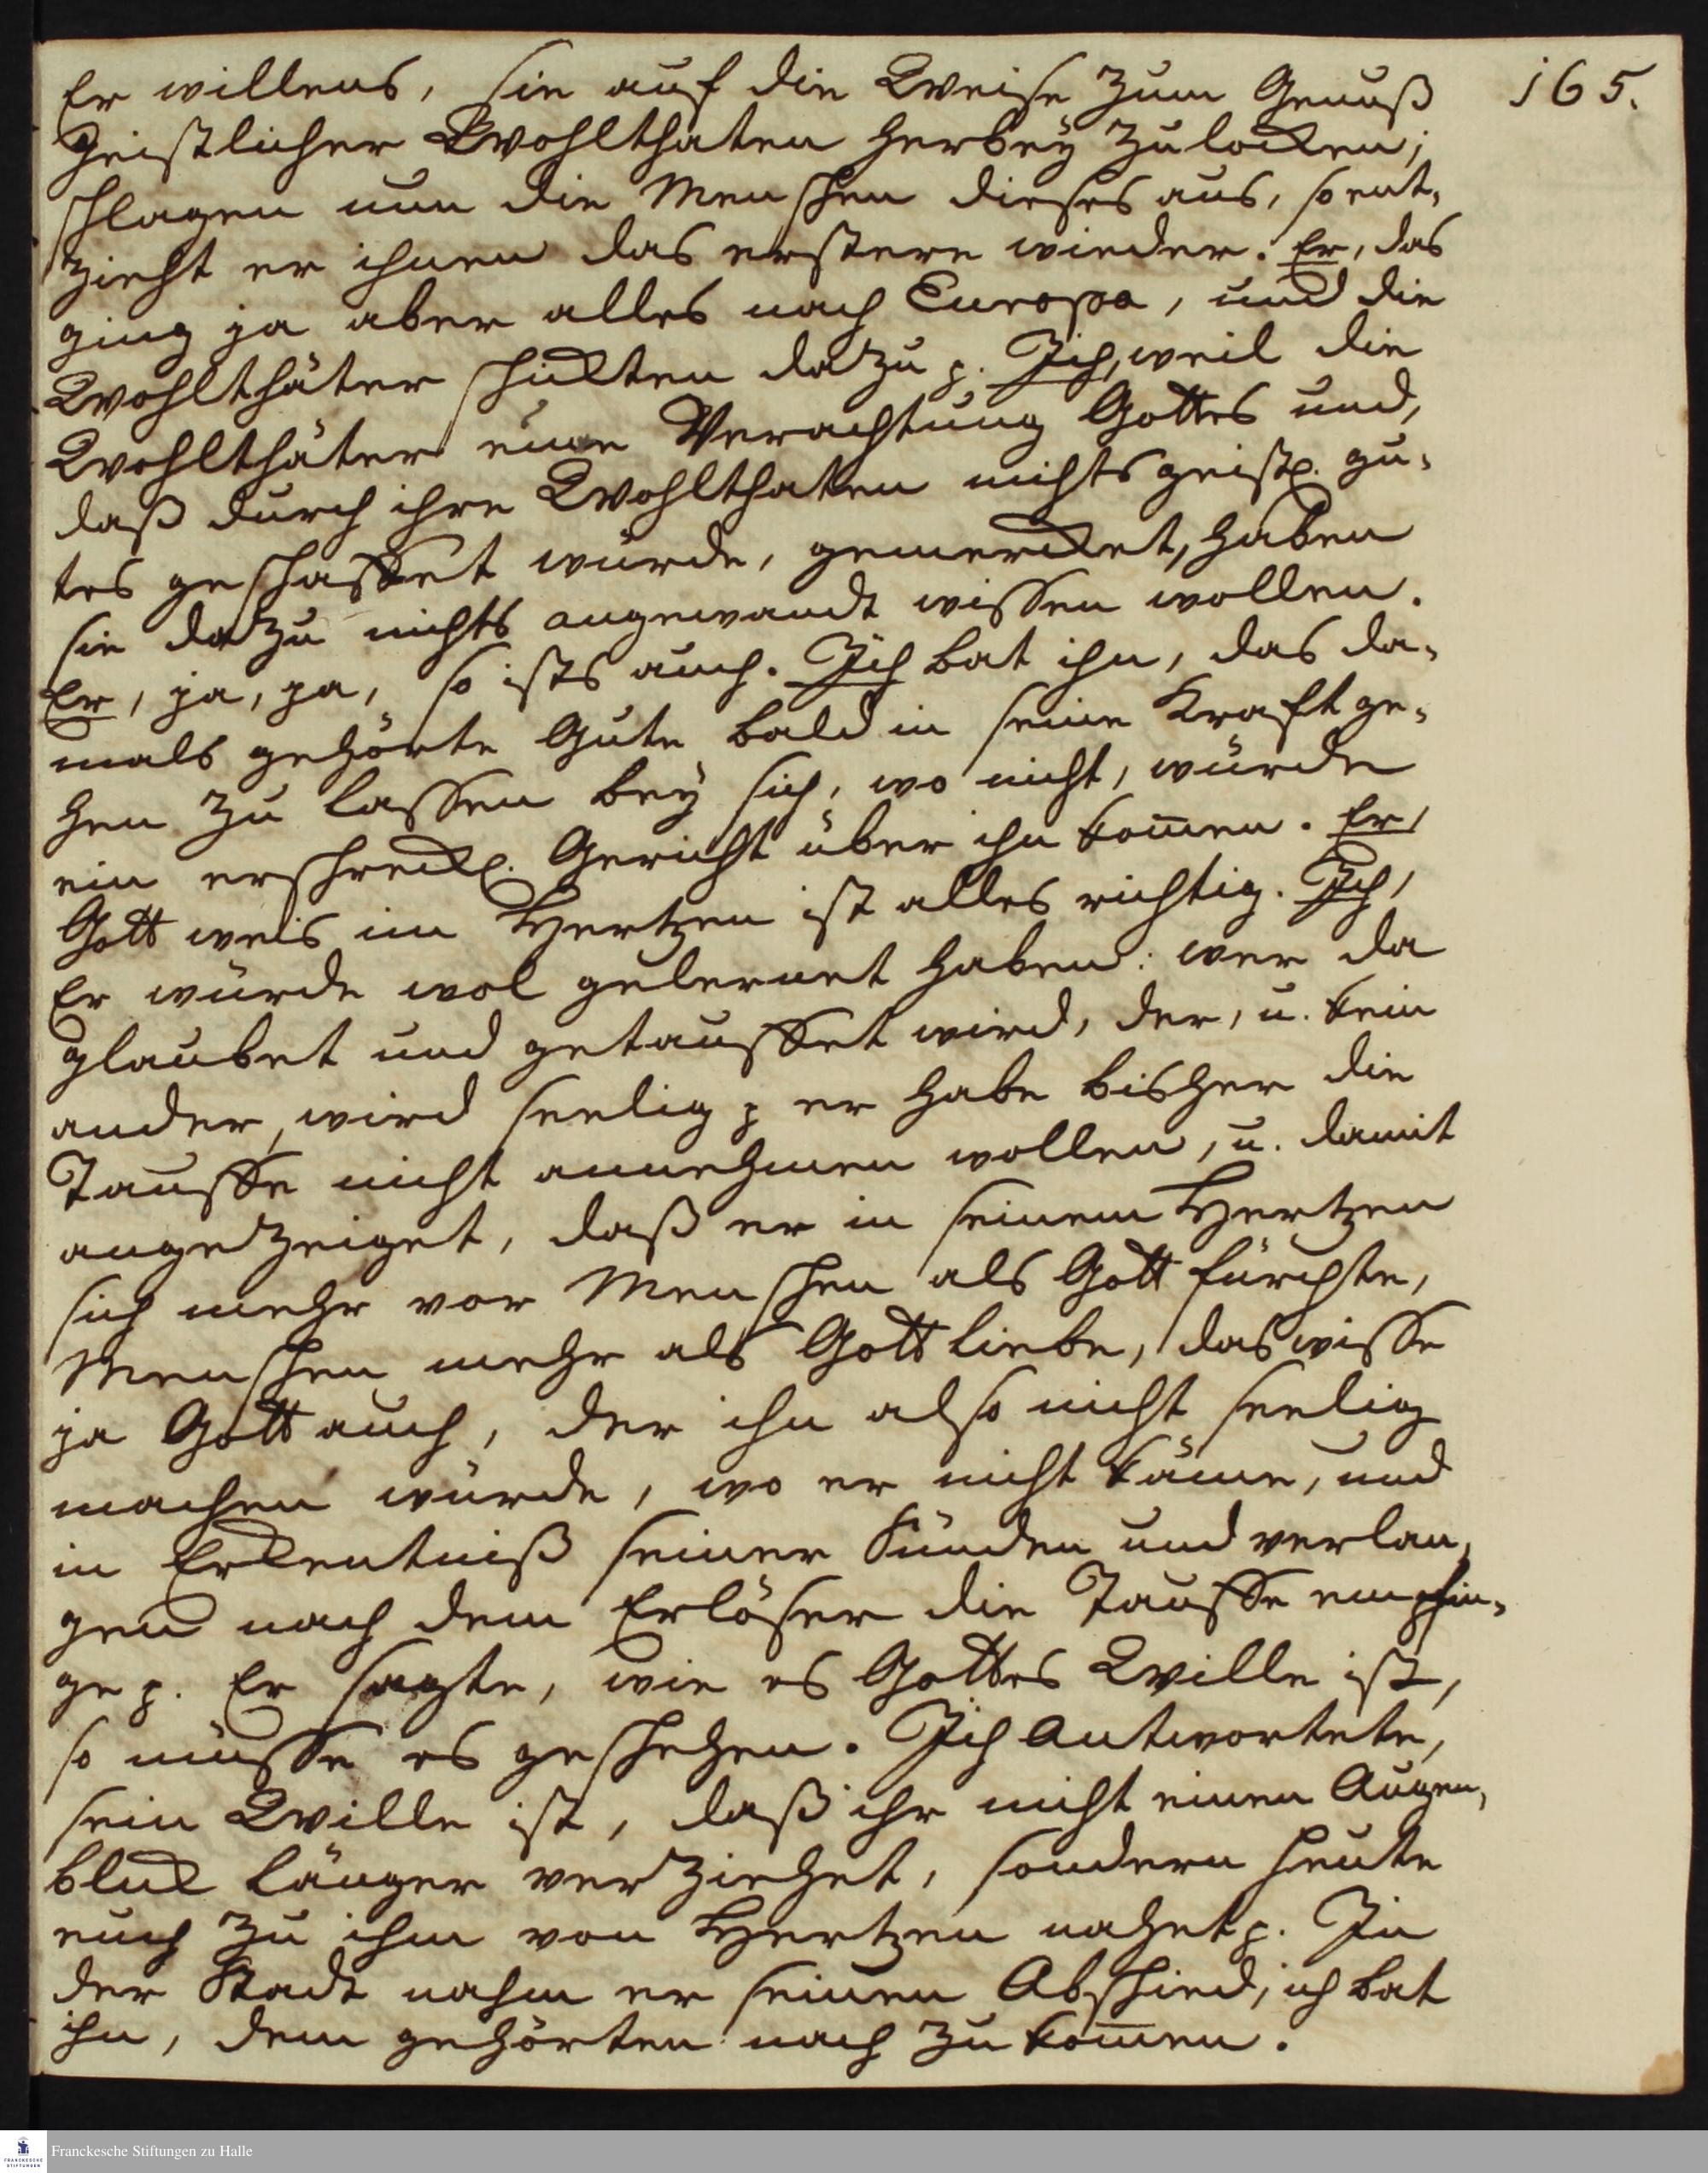 165.
Er willens, sie auf die Weise zum Genuß
geistlicher Wohlthaten herbey zulocken;
schlagen nun die Menschen dieses aus, so ent-
zieht er ihnen das erstere wieder. Er, das
ging ja aber alles nach Europa, und die
Wohlthäter schickten dazu p. Ich, weil die
Wohlthäter eure Verachtung Gottes und,
daß durch ihre Wohlthaten nichts geistl. gu-
tes geschaffet würde, gemercket, haben
sie dazu nichts angewandt wissen wollen.
Er, ja, ja, so ists auch. Ich bat ihn, das da-
mals gehörte Gute bald in seine Kraft ge-
hen zu lassen bey sich, wo nicht, würde
ein erschreckl. Gericht über ihn kom̄en. Er,
Gott weis im Hertzen ist alles richtig. Ich,
Er würde wol gelernet haben: wer da
glaubet und getauffet wird, der, u. kein
ander, wird seelig p er habe bisher die
Tauffe nicht annehmen wollen, u. damit
angezeiget, daß er in seinem Hertzen
sich mehr vor Menschen als Gott fürchte,
Menschen mehr als Gott liebe, das wisse
ja Gott auch, der ihn also nicht seelig
machen würde, wo er nicht käme, und
in Erkentniß seiner Sünden und verlan-
gen nach dem Erlöser die Tauffe empfin-
ge p. Er sagte, wie es Gottes Wille ist,
so müsse es geschehen. Ich antwortete,
sein Wille ist, daß ihr nicht einen Augen-
blick länger verziehet, sondern heute
euch zu ihm von Hertzen nahet p. In
der Stadt nahm er seinen Abschied, ich bat
ihn, dem gehörten nach zu kom̄en.
Franckesche Stiftungen zu Halle
FRANCKESCHE
STIFTUNGEN